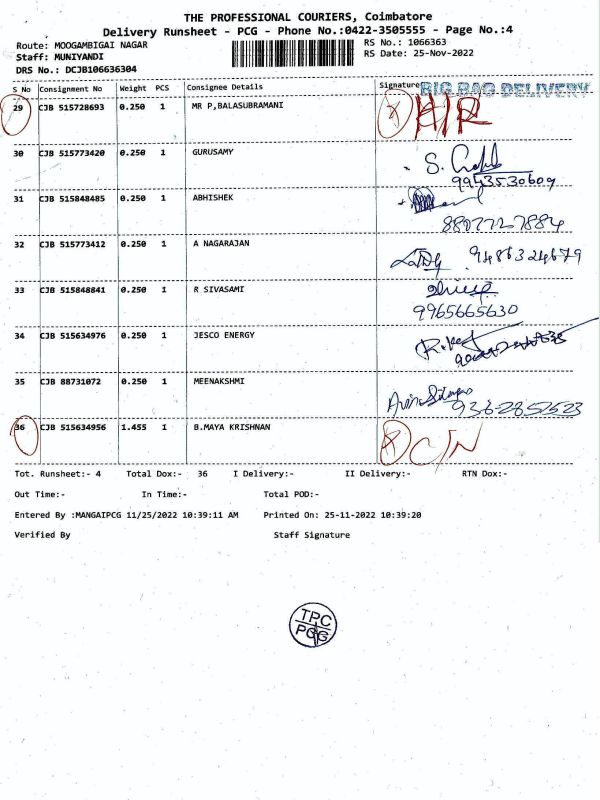 THE PROFESSIONAL COURIERS, Coimbatore
Delivery Runsheet - PCG - Phone No.:0422-3505555 - Page No.:4
Route: MOOGAMBIGAI NAGAR RS No.: 1066363
Staff: MUNIYANDI RS Date: 25-Nov-2022
DRS No.: DCJB106636304
S No Consignment No Weight PCS Consignee Details Signature BIG BAG DELIVERY
29 CJB 515728693 0.250 1 MR P,BALASUBRAMANI
30 CJB 515773420 0.250 1 GURUSAMY S.
9943530609
31 CJB 515848485 0.250 1 ABHISHEK
8807727884
32 CJB 515773412 0.250 1 A NAGARAJAN 9486324679
33 CJB 515848841 0.250 1 R SIVASAMI
9965665630
34 CJB 515634976 0.250 1 JESCO ENERGY
35 CJB 88731072 0.250 1 MEENAKSHMI
36 CJB 515634956 1.455 1 B.MAYA KRISHNAN C/N
Tot. Runsheet:- 4 Total Dox:- 36 I Delivery:- II Delivery:- RTN Dox:-
Out Time:- In Time:- Total POD:-
Entered By :MANGAIPCG 11/25/2022 10:39:11 AM Printed On: 25-11-2022 10:39:20
Verified By Staff Signature
TPC
PCG